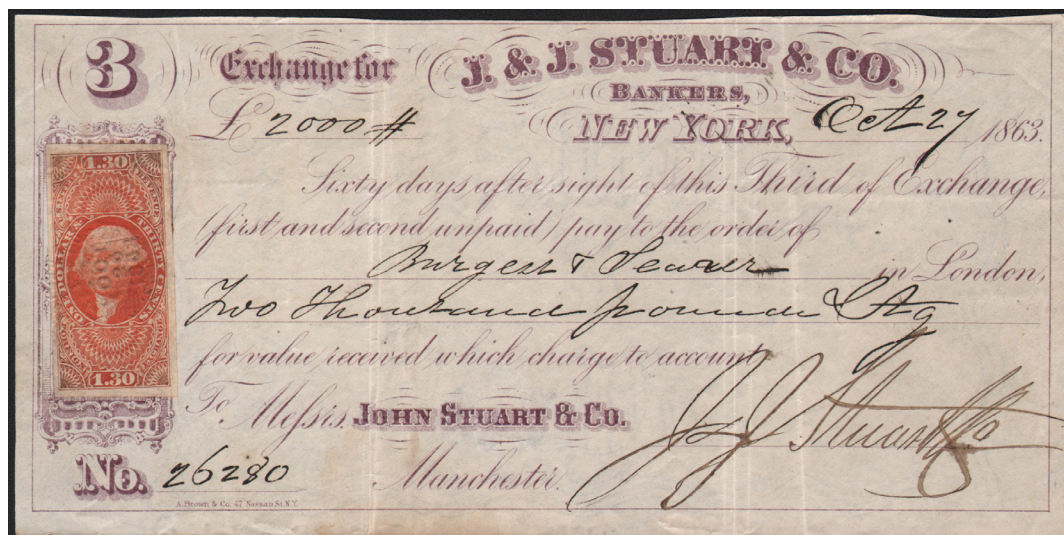 3 Exchange for J. & J. STUART & CO.
BANKERS,
£ 2000 # NEW YORK, Oct 27 1863.
Sixty days after sight of this Third of Exchange,
(first and second unpaid) pay to the order of
Burgess & in London,
Two Thousand pounds Stg
for value received which charge to account
To Messrs. JOHN STUART & CO.
Manchester.
No. 26280
J J Stuart & Co
A. Brown & Co. 47 Nassau St. N.Y.
1.30
ONE DOLLAR & THIRTY CENTS
1.30